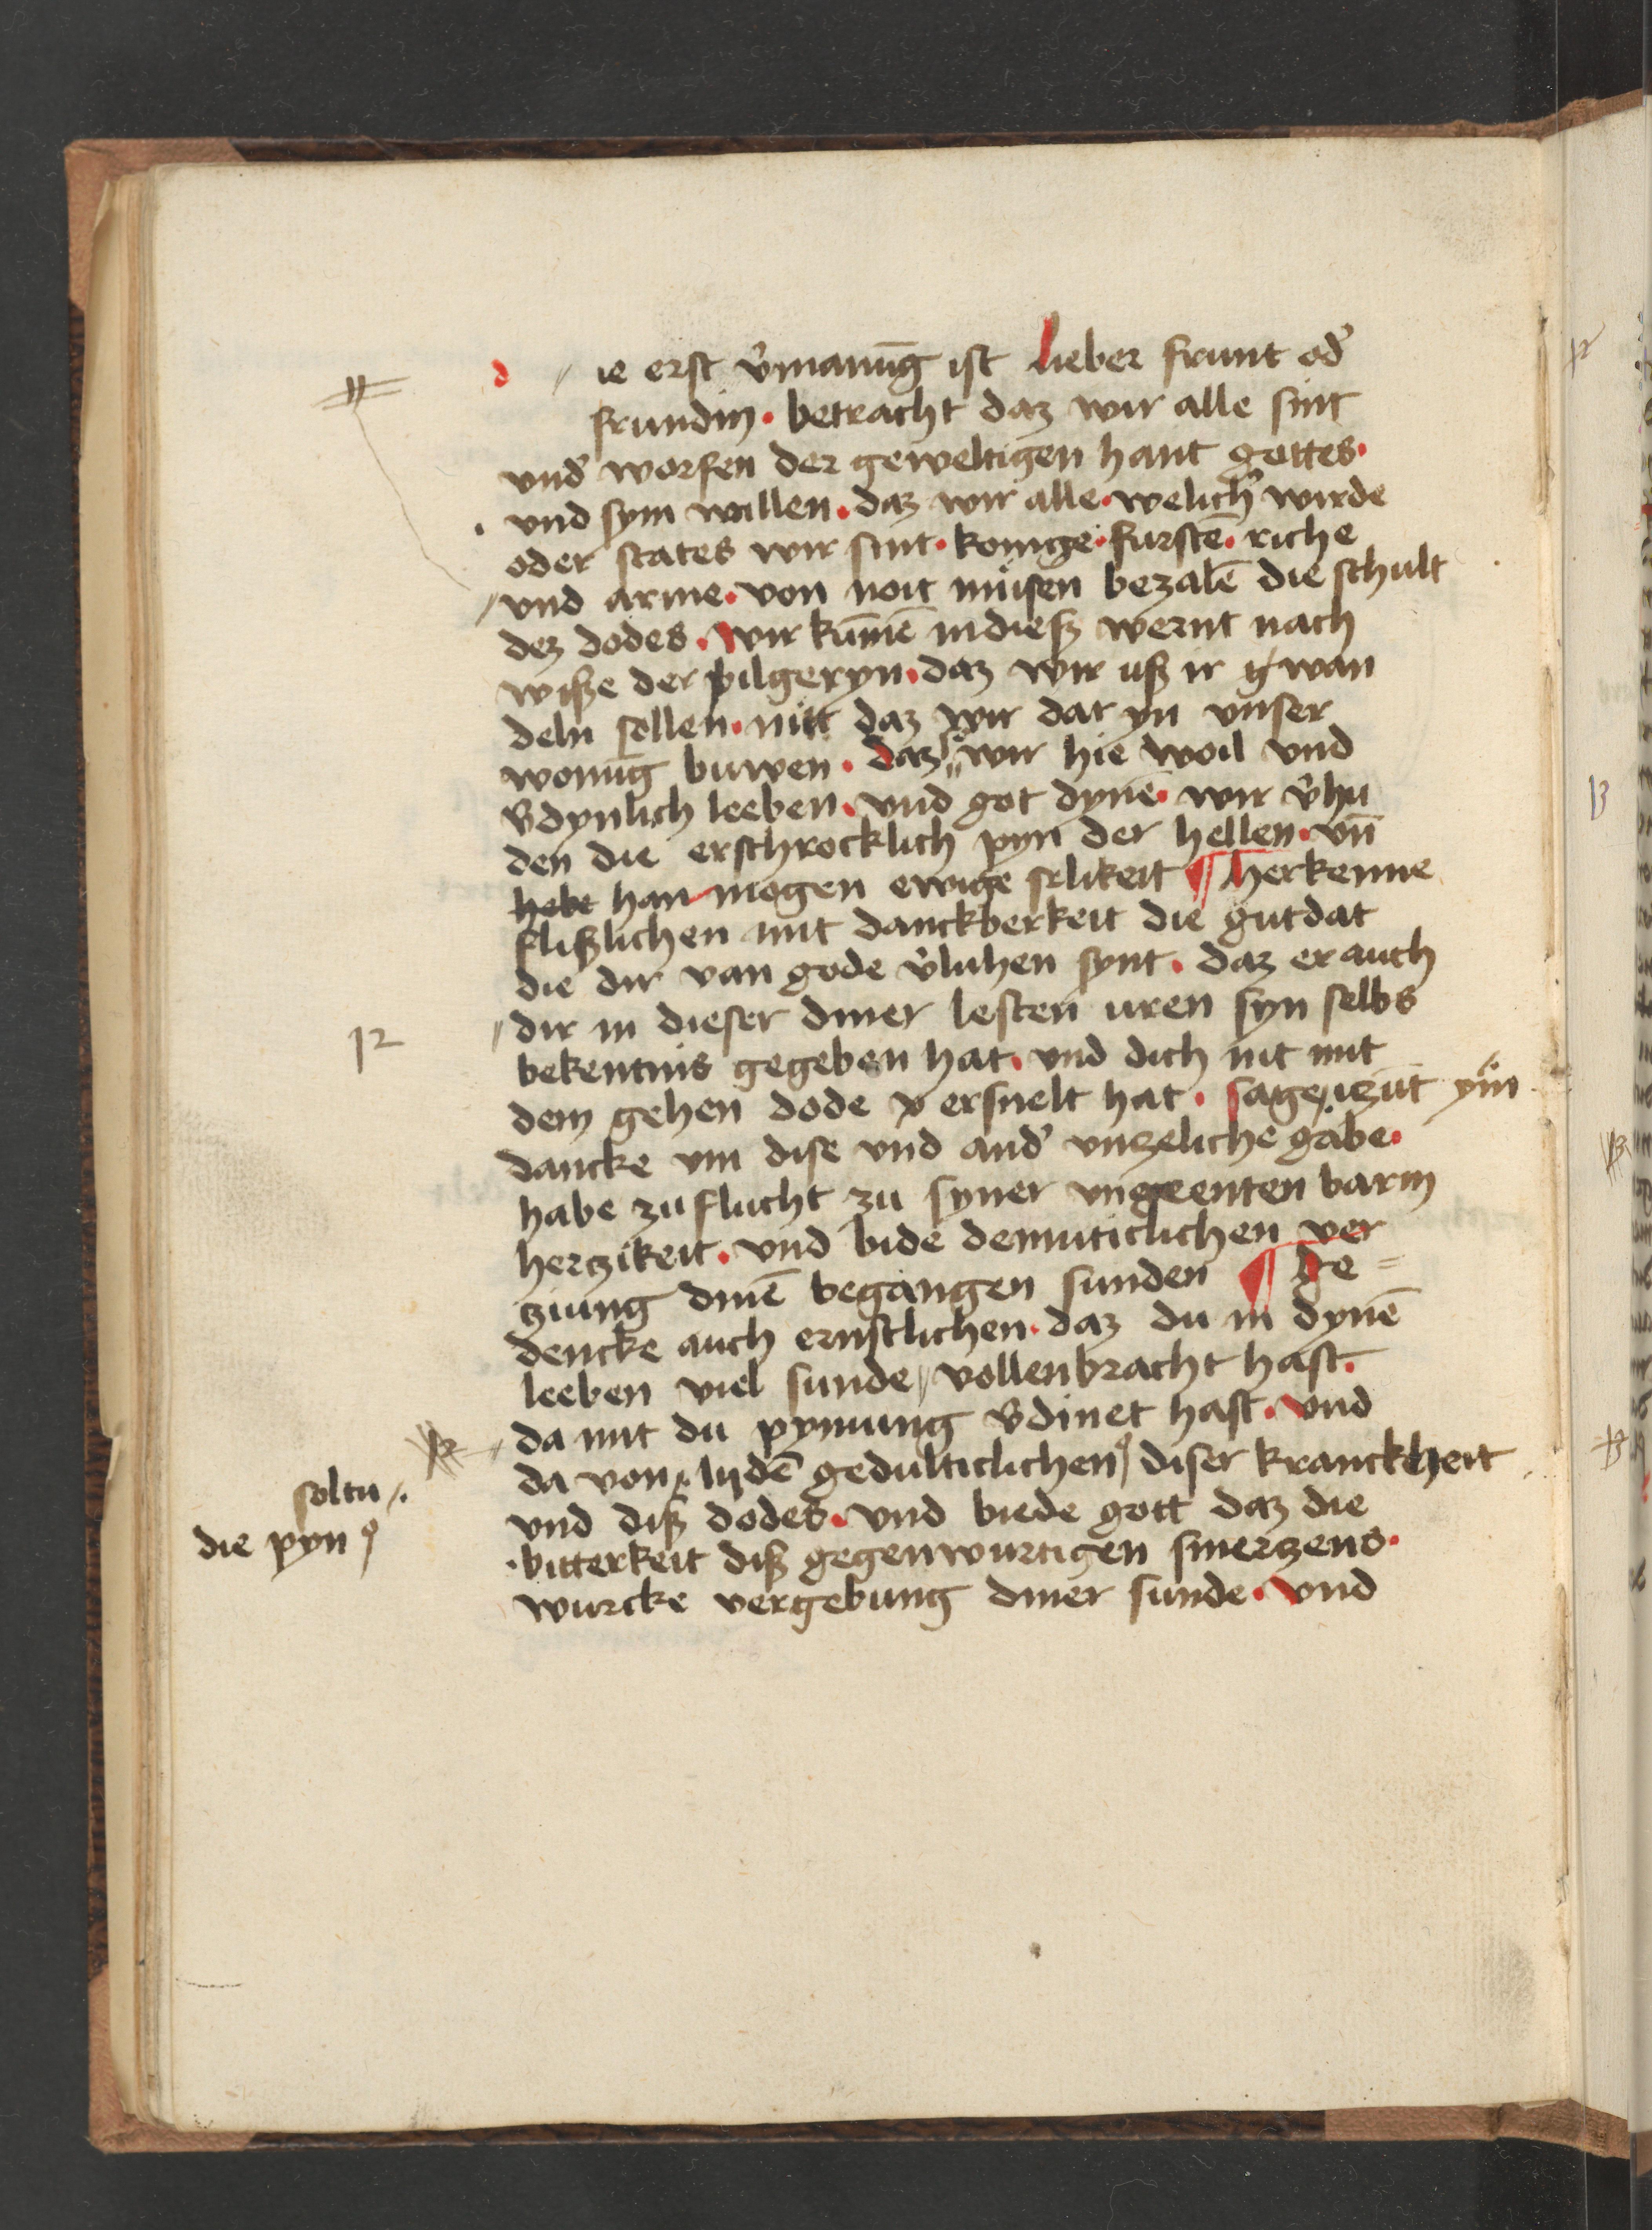 die erst v̉manu̅g ist lieber frunt od̉
frundin. betracht daz wir alle sint
vnd̉ worfen der geweltigen hant gottes.
vnd sym willen. daz wir alle. welich̉ wirde
oder states wir sint. konige. furste̅. riche
vnd arme. von noit müsen bezale̅ die schult
dez dodes. wir ku̅me̅ in diesz wernt nach
wisze der pilgeryn. daz wir usz ir wan
deln sollen. nitt daz wir dar yn vnser
wonu̅g buwen. daz so wir hie woil vnd
v̉dynlich leeben. vnd got dyne̅. wir v̉hu
den die erschrocklich pyn der hellen. vn̅
hebt han mogen ewige selikeit ¶ herkenne
fliszlichen mit danckberkeit die gutdat
die dir van gode v̉luhen synt. daz er auch
12
dir in dieser diner lesten uren syn selbs
bekentnis gegeben hat. vnd dich nit mit
dem gehen dode v ersnelt hat. sage iezut ym
dancke vm dise vnd and̉ vnzeliche gabe.
habe zuflucht zu syner vngeenten barm
herczikeit. vnd bide demuticlichen ver
ziung dine̅ begangen sunden ¶ Ge=
dencke auch ernstlichen. daz du in dyne̅
leeben viel sunde vollenbracht hast.
da mit du pynnung v̉dinet hast. vnd
da von lyde̅ gedulticlichen diser kranckheit
soltu
vnd disz dodes. vnd biede gott daz die
die pyn
bitterkeit disz gegenwurtigen smerzens.
wurcke vergebung diner sunde. vnd